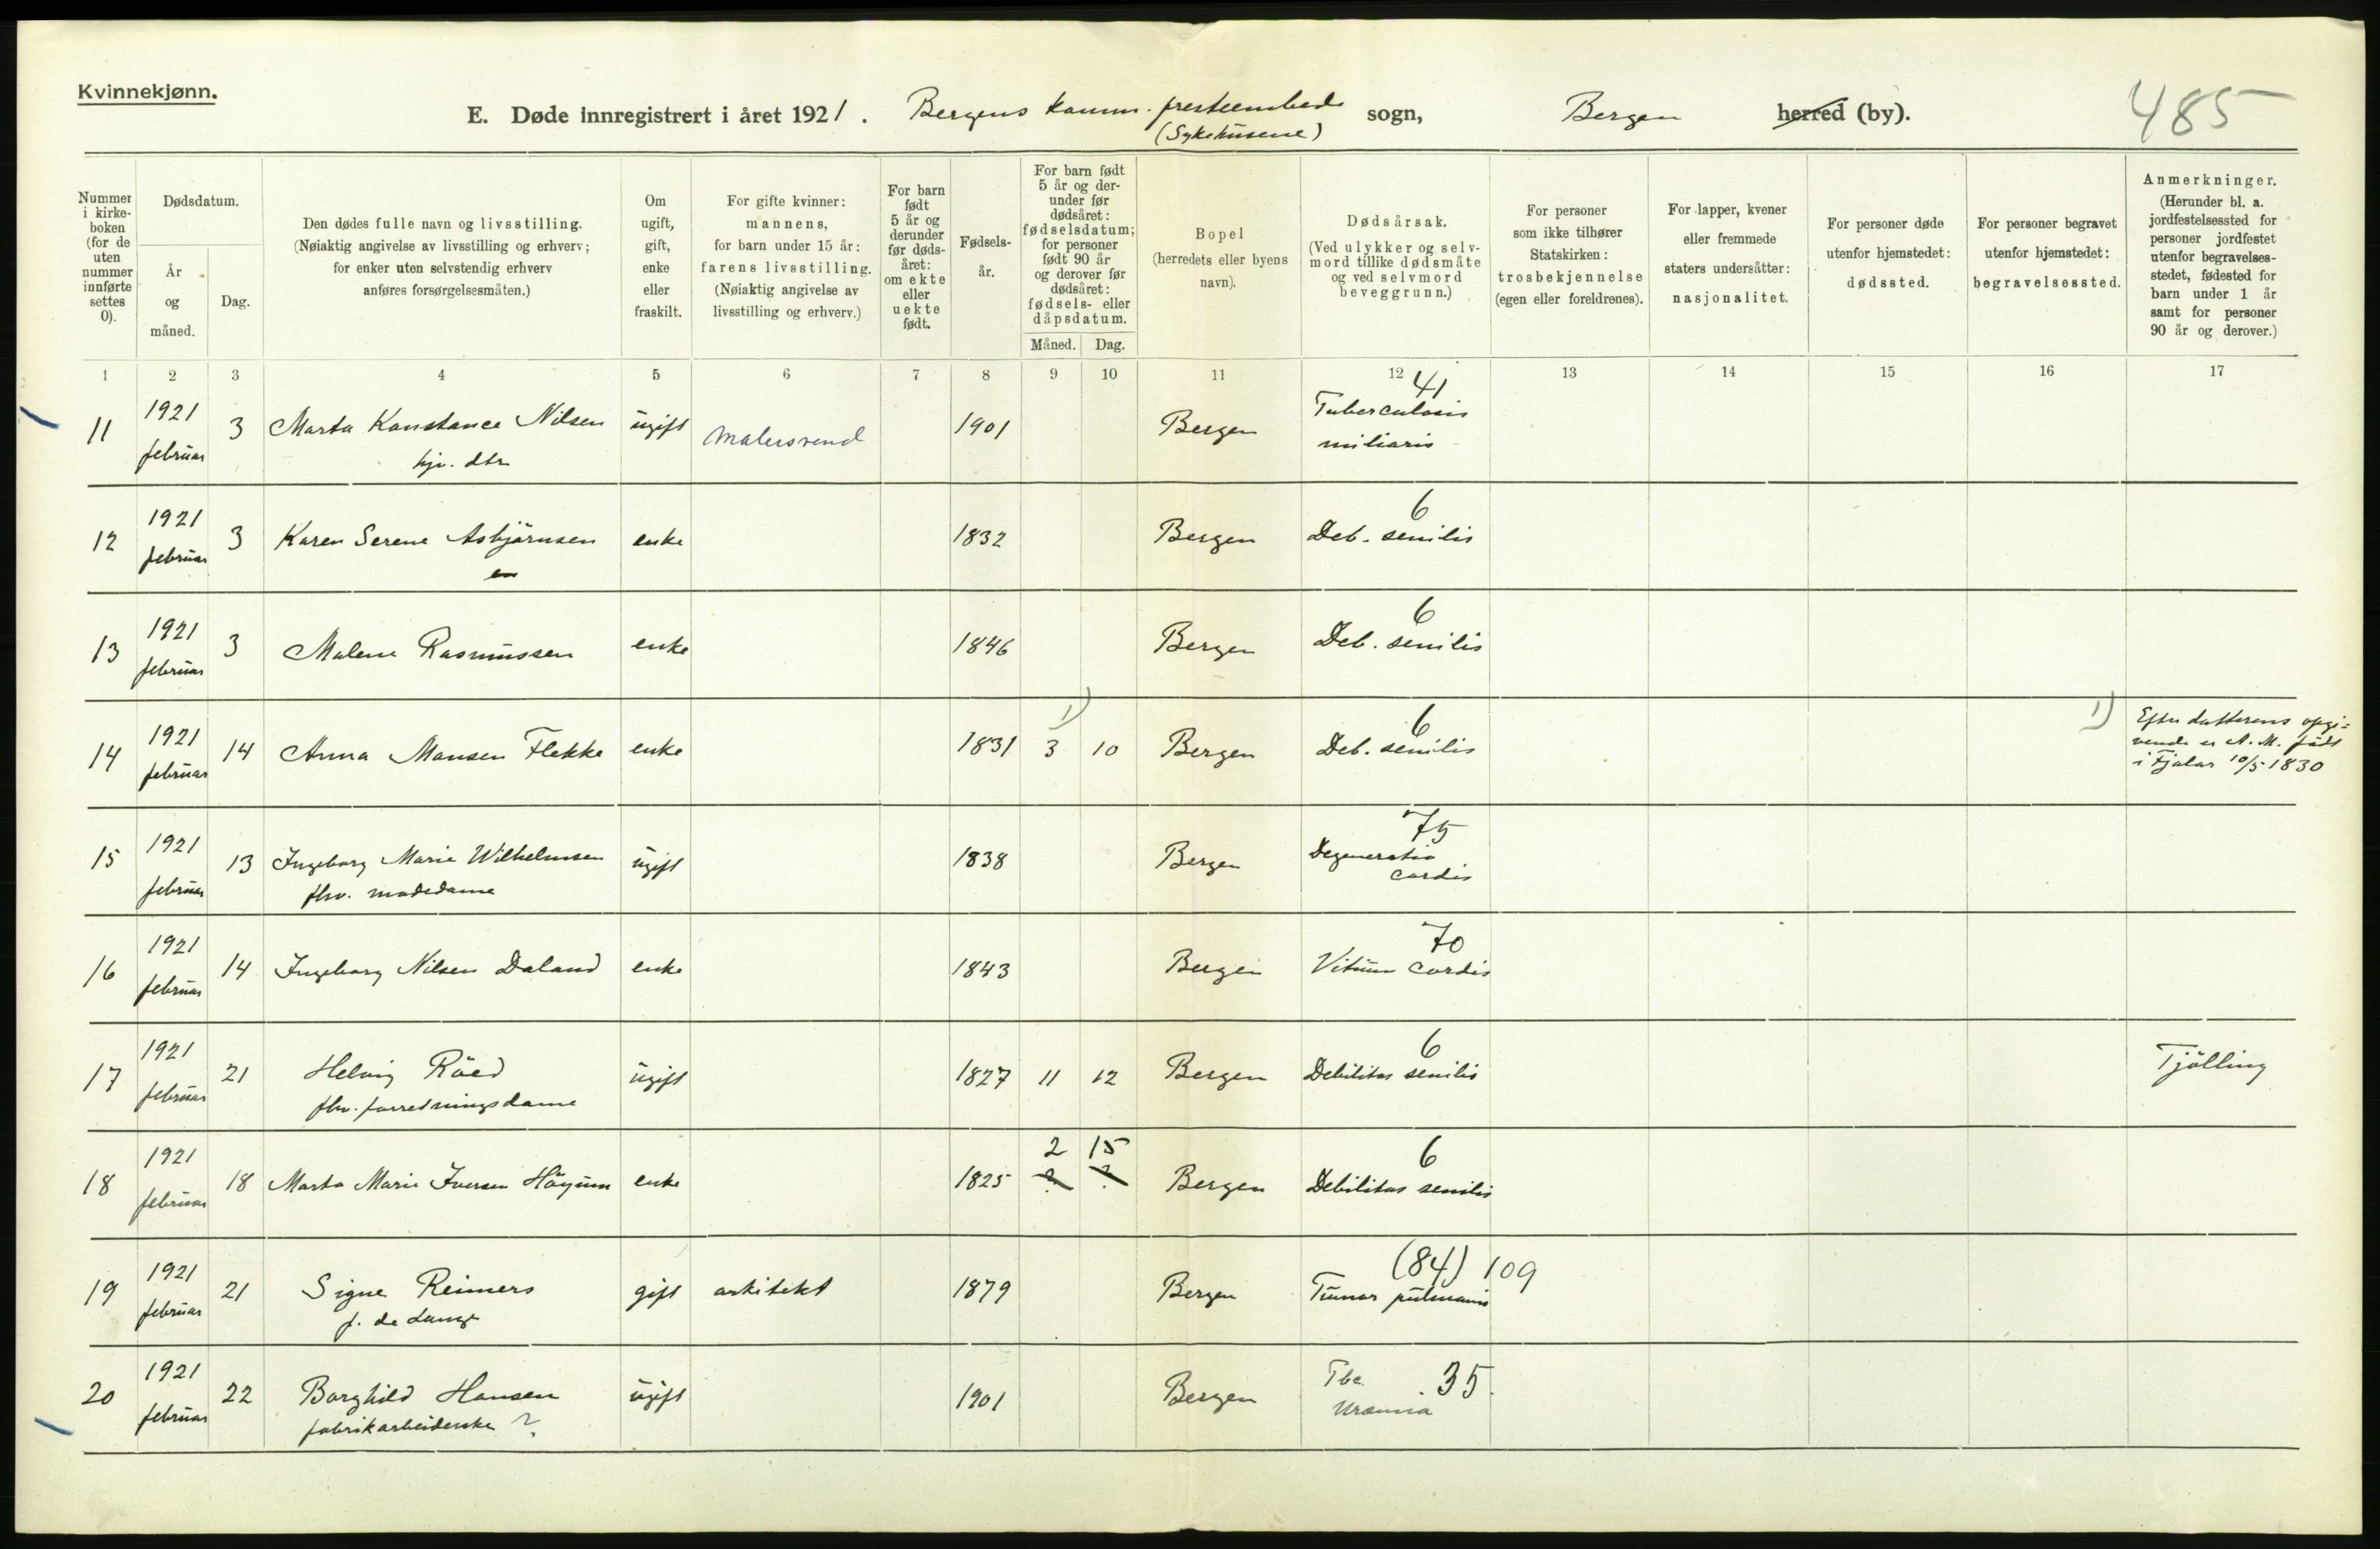 Kvinnekjønn.
E. Døde innregistrert i året 1921. Bergens komm. presteembede sogn, Bergen herred (by). 485
(Sykehusene)
Nummer i kirkeboken (for de uten nummer innførte settes 0).
Dødsdatum.
År og måned.
Dag.
Den dødes fulle navn og livsstilling.
(Nøiaktig angivelse av livsstilling og erhverv;
for enker uten selvstendig erhverv
anføres forsørgelsesmåten.)
Om ugift, gift, enke eller fraskilt.
For gifte kvinner:
mannens,
for barn under 15 år:
farens livsstilling.
(Nøiaktig angivelse av
livsstilling og erhverv.)
For barn født 5 år og derunder før dødsåret: om ekte eller uekte født.
Fødselsår.
For barn født 5 år og derunder før dødsåret: fødselsdatum; for personer født 90 år og derover før dødsåret: fødsels- eller dåpsdatum.
Måned. Dag.
Bopel
(herredets eller byens navn).
Dødsårsak.
(Ved ulykker og selvmord tillike dødsmåte og ved selvmord beveggrunn.)
For personer som ikke tilhører Statskirken: trosbekjennelse (egen eller foreldrenes).
For lapper, kvener eller fremmede staters undersåtter: nasjonalitet.
For personer døde utenfor hjemstedet: dødssted.
For personer begravet utenfor hjemstedet: begravelsessted.
Anmerkninger.
(Herunder bl. a. jordfestelsessted for personer jordfestet utenfor begravelsesstedet, fødested for barn under 1 år samt for personer 90 år og derover.)
1 2 3 4 5 6 7 8 9 10 11 12 13 14 15 16 17
11 1921 februar 3 Marta Konstance Nilsen ugift malersvend 1901 Bergen 41 Tuberculosis miliaris
hjv. dtr
12 1921 februar 3 Karen Serene Asbjørnsen enke 1832 Bergen 6 Deb. senilis
13 1921 februar 3 Malene Rasmussen enke 1846 Bergen 6 Deb. senilis
14 1921 februar 14 Anna Monsen Flekke enke 1831 1) 3 10 Bergen 6 Deb. senilis 1) Efter datterens opgivende er A. M. født i Fjaler 10/5 1830
15 1921 februar 13 Ingeborg Marie Wilhelmsen ugift 1838 Bergen 75 Degeneratio cordis
fhv. modedame
16 1921 februar 14 Ingeborg Nilsen Daland enke 1843 Bergen 70 Vitium cordis
17 1921 februar 21 Helvig Röed ugift 1827 11 12 Bergen 6 Debilitas senilis Tjölling
fhv. forretningsdame
18 1921 februar 18 Marta Marie Iversen Höyum enke 1825 2 15 ? ? Bergen 6 Debilitas senilis
19 1921 februar 21 Signe Reimers gift arkitekt 1879 Bergen (84) 109 Tumor pulmonis
f. de Lange
20 1921 februar 22 Borghild Hansen ugift 1901 Bergen Tbc. 35. Uræmia
fabrikarbeiderske ?